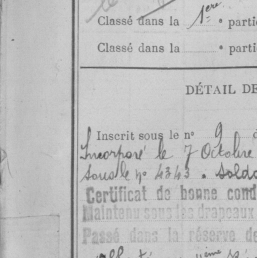 Classé dans la 1ère e partie
Classé dans la e partie
DÉTAIL DE
Inscrit sous le n° 9 d
Incorporé le 7 Octobre
sous le n° 4343. Soldat
Certificat de bonne cond
Maintenu sous les drapeaux
Passé dans la réserve de